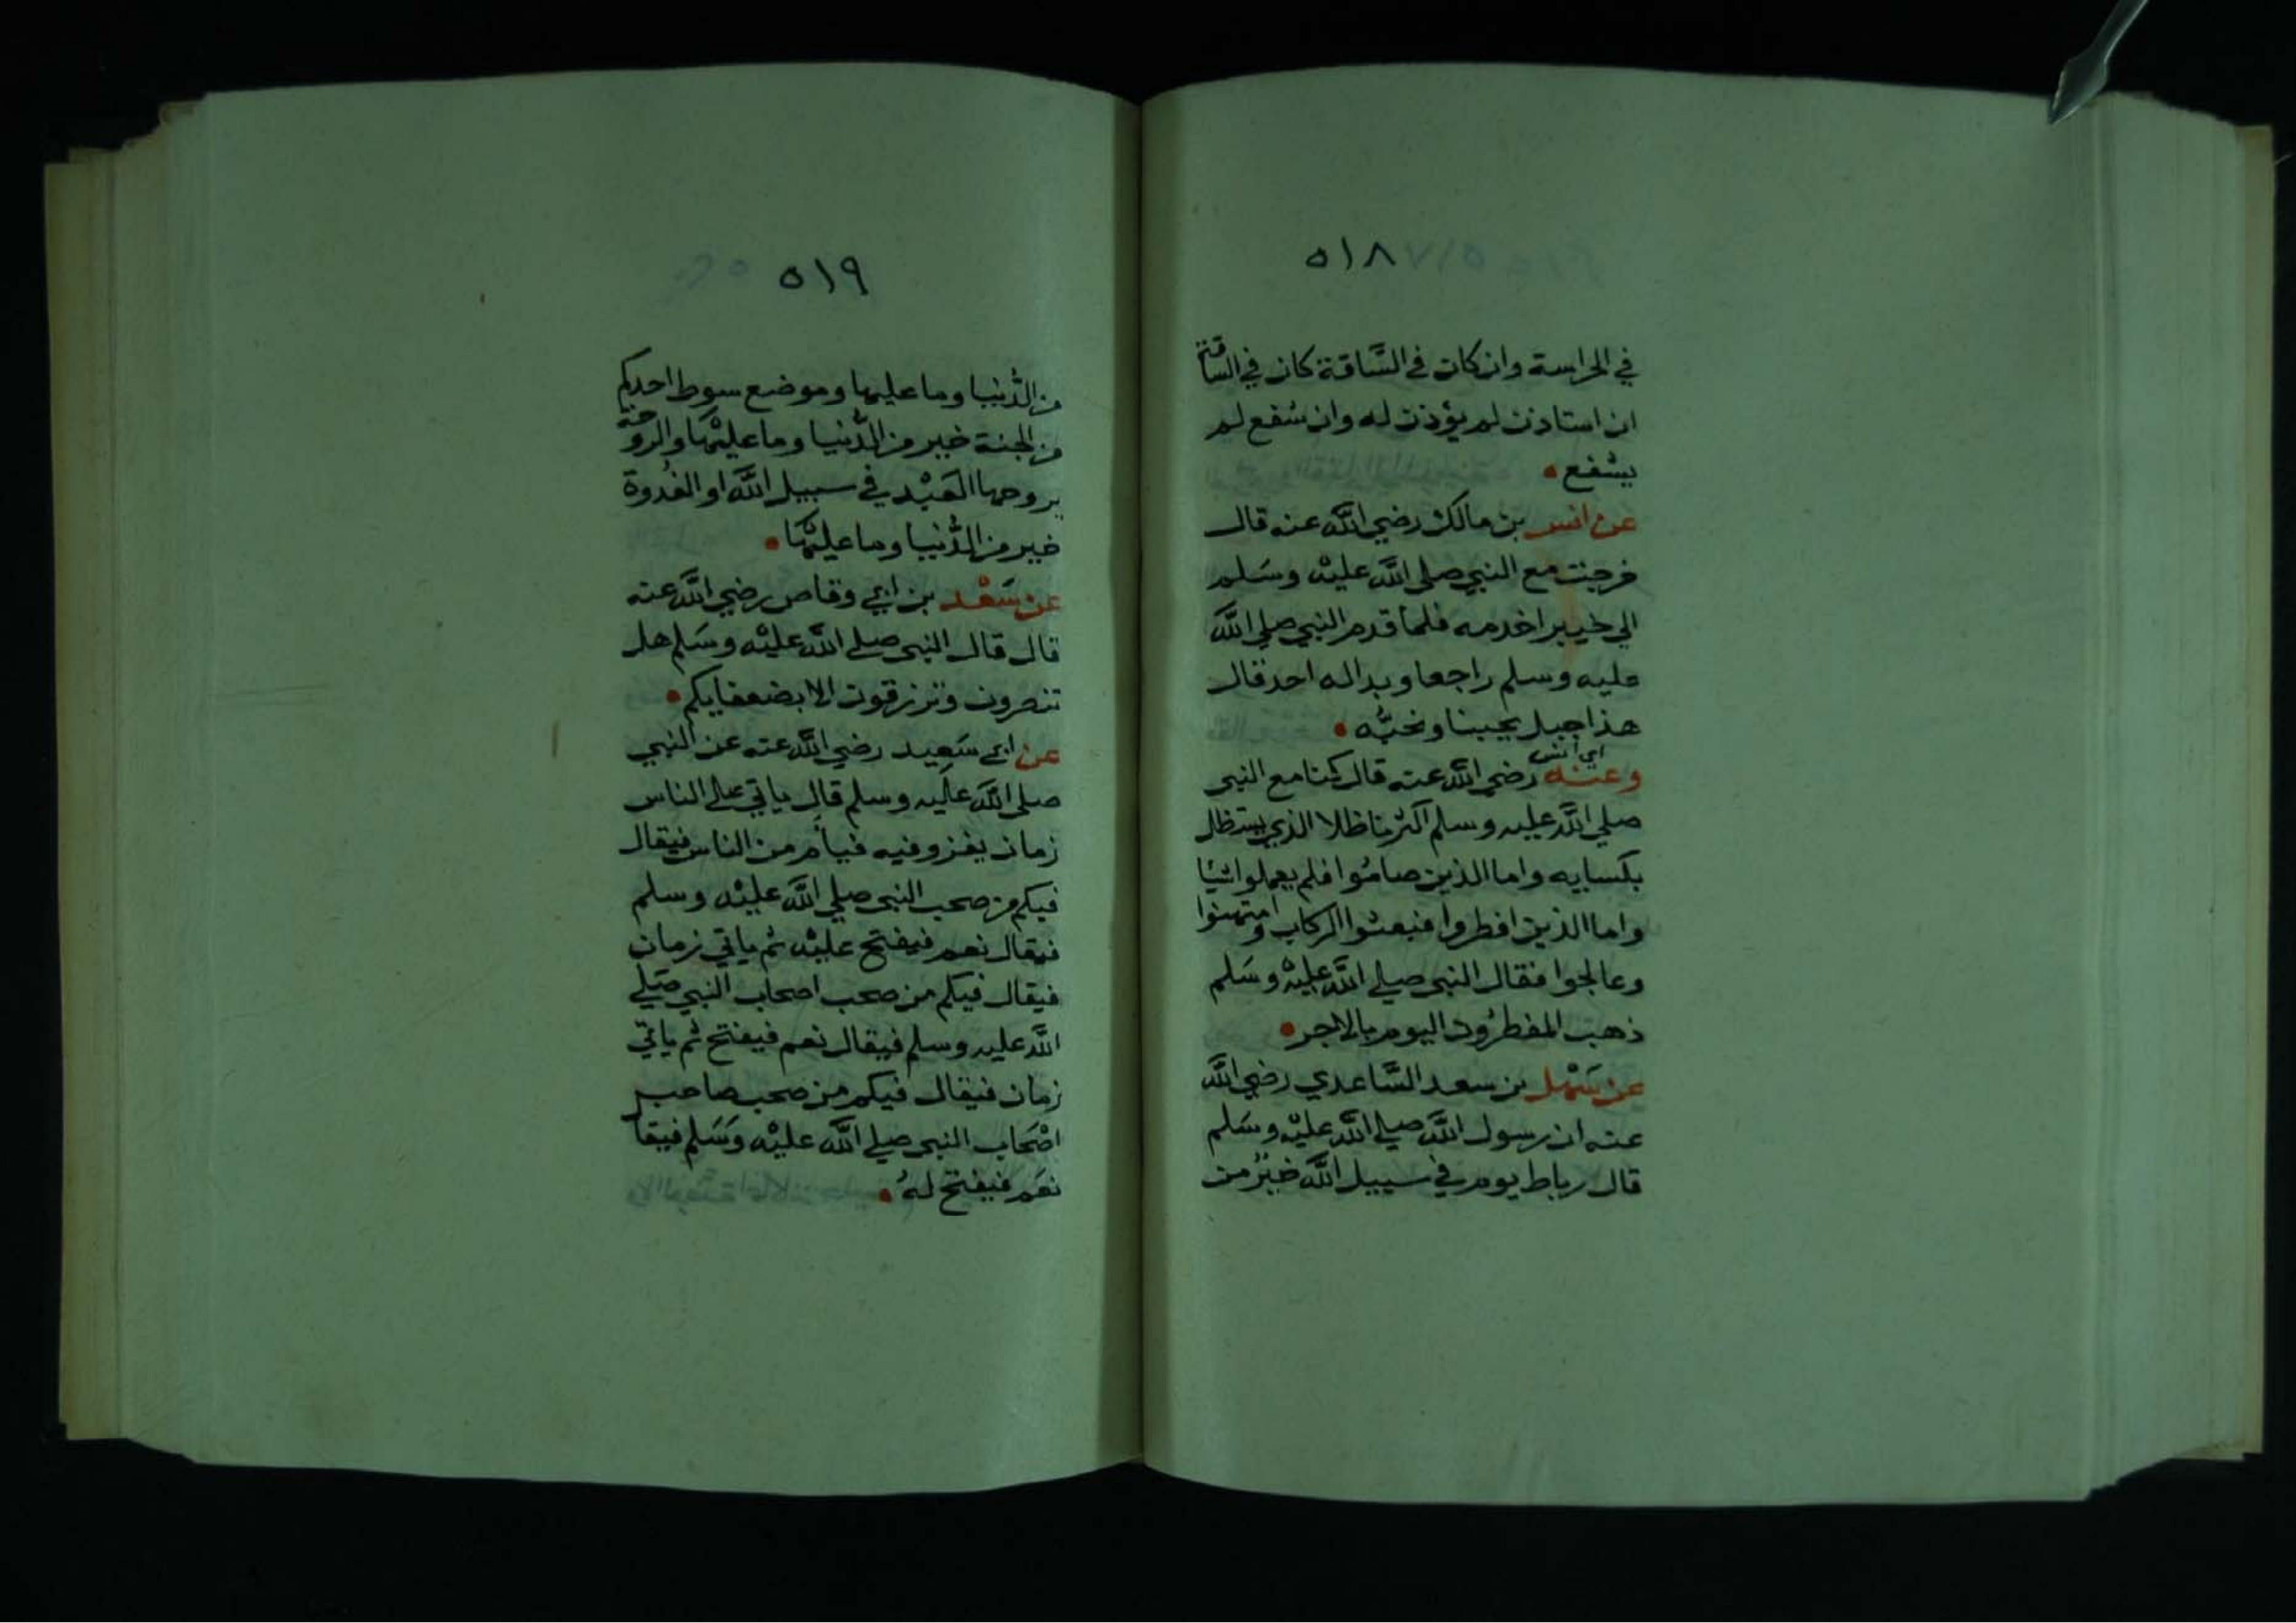 ٥١٨
في الحراسة وان كان في السَّاقة كان في الساقة
ان استاذن لم يؤذن له وان شفع لم
يشفع
عن انس بن مالك رضي الله عنه قال
خرجت مع النبي صلى الله عليه وسَلم
الي خيبر اخدمه فلما قدم النبي صلي الله
عليه وسلم راجعا وبدا له احد قال
هذا جبل يحبنا ونحبُّه
اي انس
وعنه رضي الله عنه قال كنا مع النبي
صلي الله عليه وسلم اكثرنا ظلا الذي يستظل
بكسايه واما الذين صامُوا فلم يعملوا شيًا
واما الذين افطروا فبعثوا الركاب وامتهنوا
وعالجوا فقال النبي صلي الله عليه وسَلم
ذهب المفطرُون اليوم بالاجر
عن سَهْل بن سعد السَّاعدي رضي الله
عنه ان رسول الله صلي الله عليه وسَلم
قال رباط يوم في سبيل الله خيرٌ من
٥١٩
من الدُّنيا وما عليها وموضع سوط احدكم
من الجنة خير من الدُّنيا وما عليْها والروحة
يروحها العَبْد في سبيل الله او الغُدوة
خير من الدُّنيا وما عليْها
عن سَعْد بن ابي وقاص رضي الله عنه
قال قال النبي صلي الله عليْه وسَلم هل
تنصرون وترزقون الا بضعفايكم
عن ابي سَعِيد رضي الله عنه عن النبي
صلي الله عليه وسلم قال ياتي علي الناس
زمان يغزو فيه فيام من الناس فيقال
فيكم من صحب النبي صلي الله عليْه وسلم
فيقال نعم فيفتح عليْه ثم ياتي زمان
فيقال فيكم من صحب اصحاب النبي صَلي
الله عليه وسلم فيقال نعم فيفتح ثم ياتي
زمان فيقال فيكم من صحب صاحب
اصْحَاب النبي صلي الله عليْه وَسَلم فيقا
نعَم فيفتح لهُ